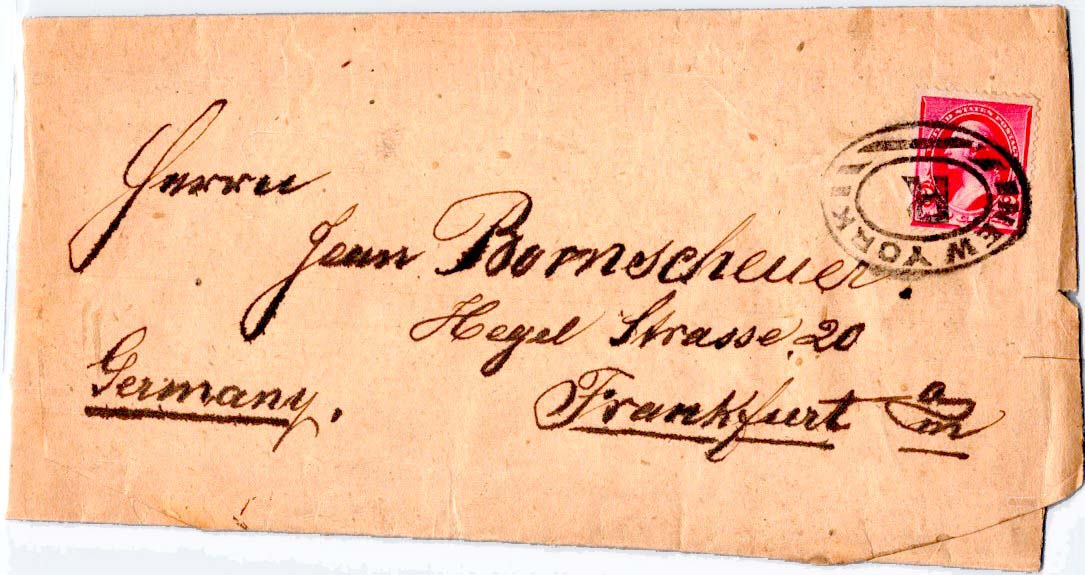 UNITED STATES POSTAGE
NEW YORK
Herrn
Jean Bornscheuer.
Hegel Strasse 20
Germany.
Frankfurt a/m